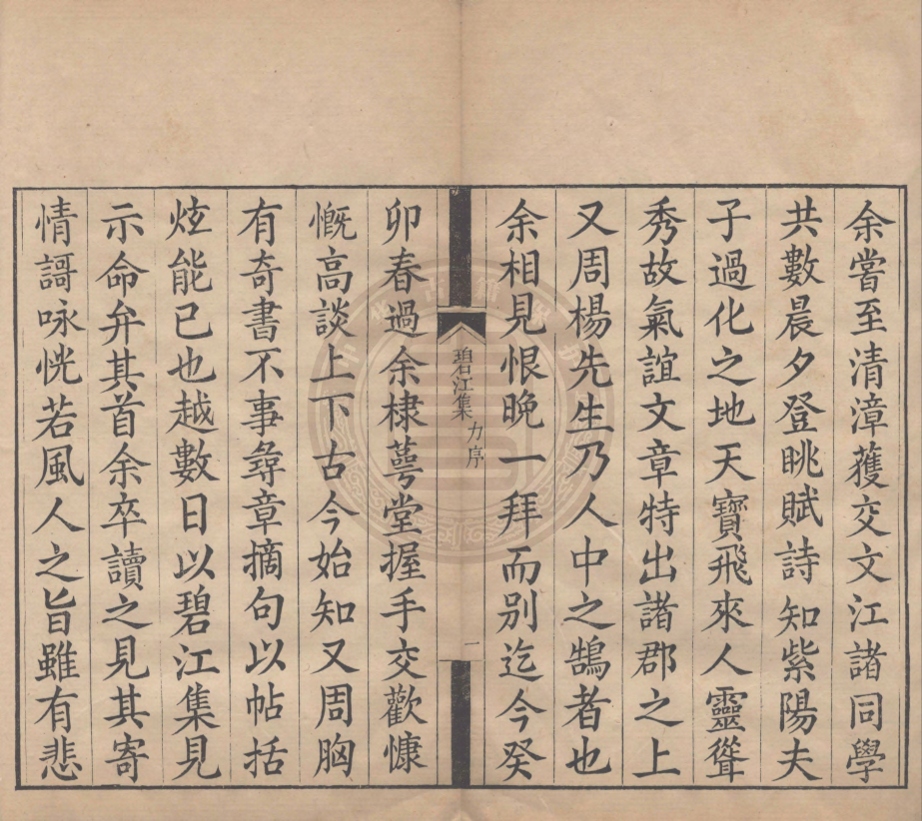 余嘗至清漳獲交文江諸同學
共數晨夕登眺賦詩知紫陽夫
子過化之地天寶飛來人靈聳
秀故氣誼文章特出諸郡之上
又周楊先生乃人中之鵠者也
余相見恨晚一拜而別迄今癸
碧江集 力序 一
卯春過余棣萼堂握手交歡慷
慨高談上下古今始知又周胸
有奇書不事尋章摘句以帖括
炫能已也越數日以碧江集見
示命弁其首余卒讀之見其寄
情謌咏恍若風人之旨雖有悲